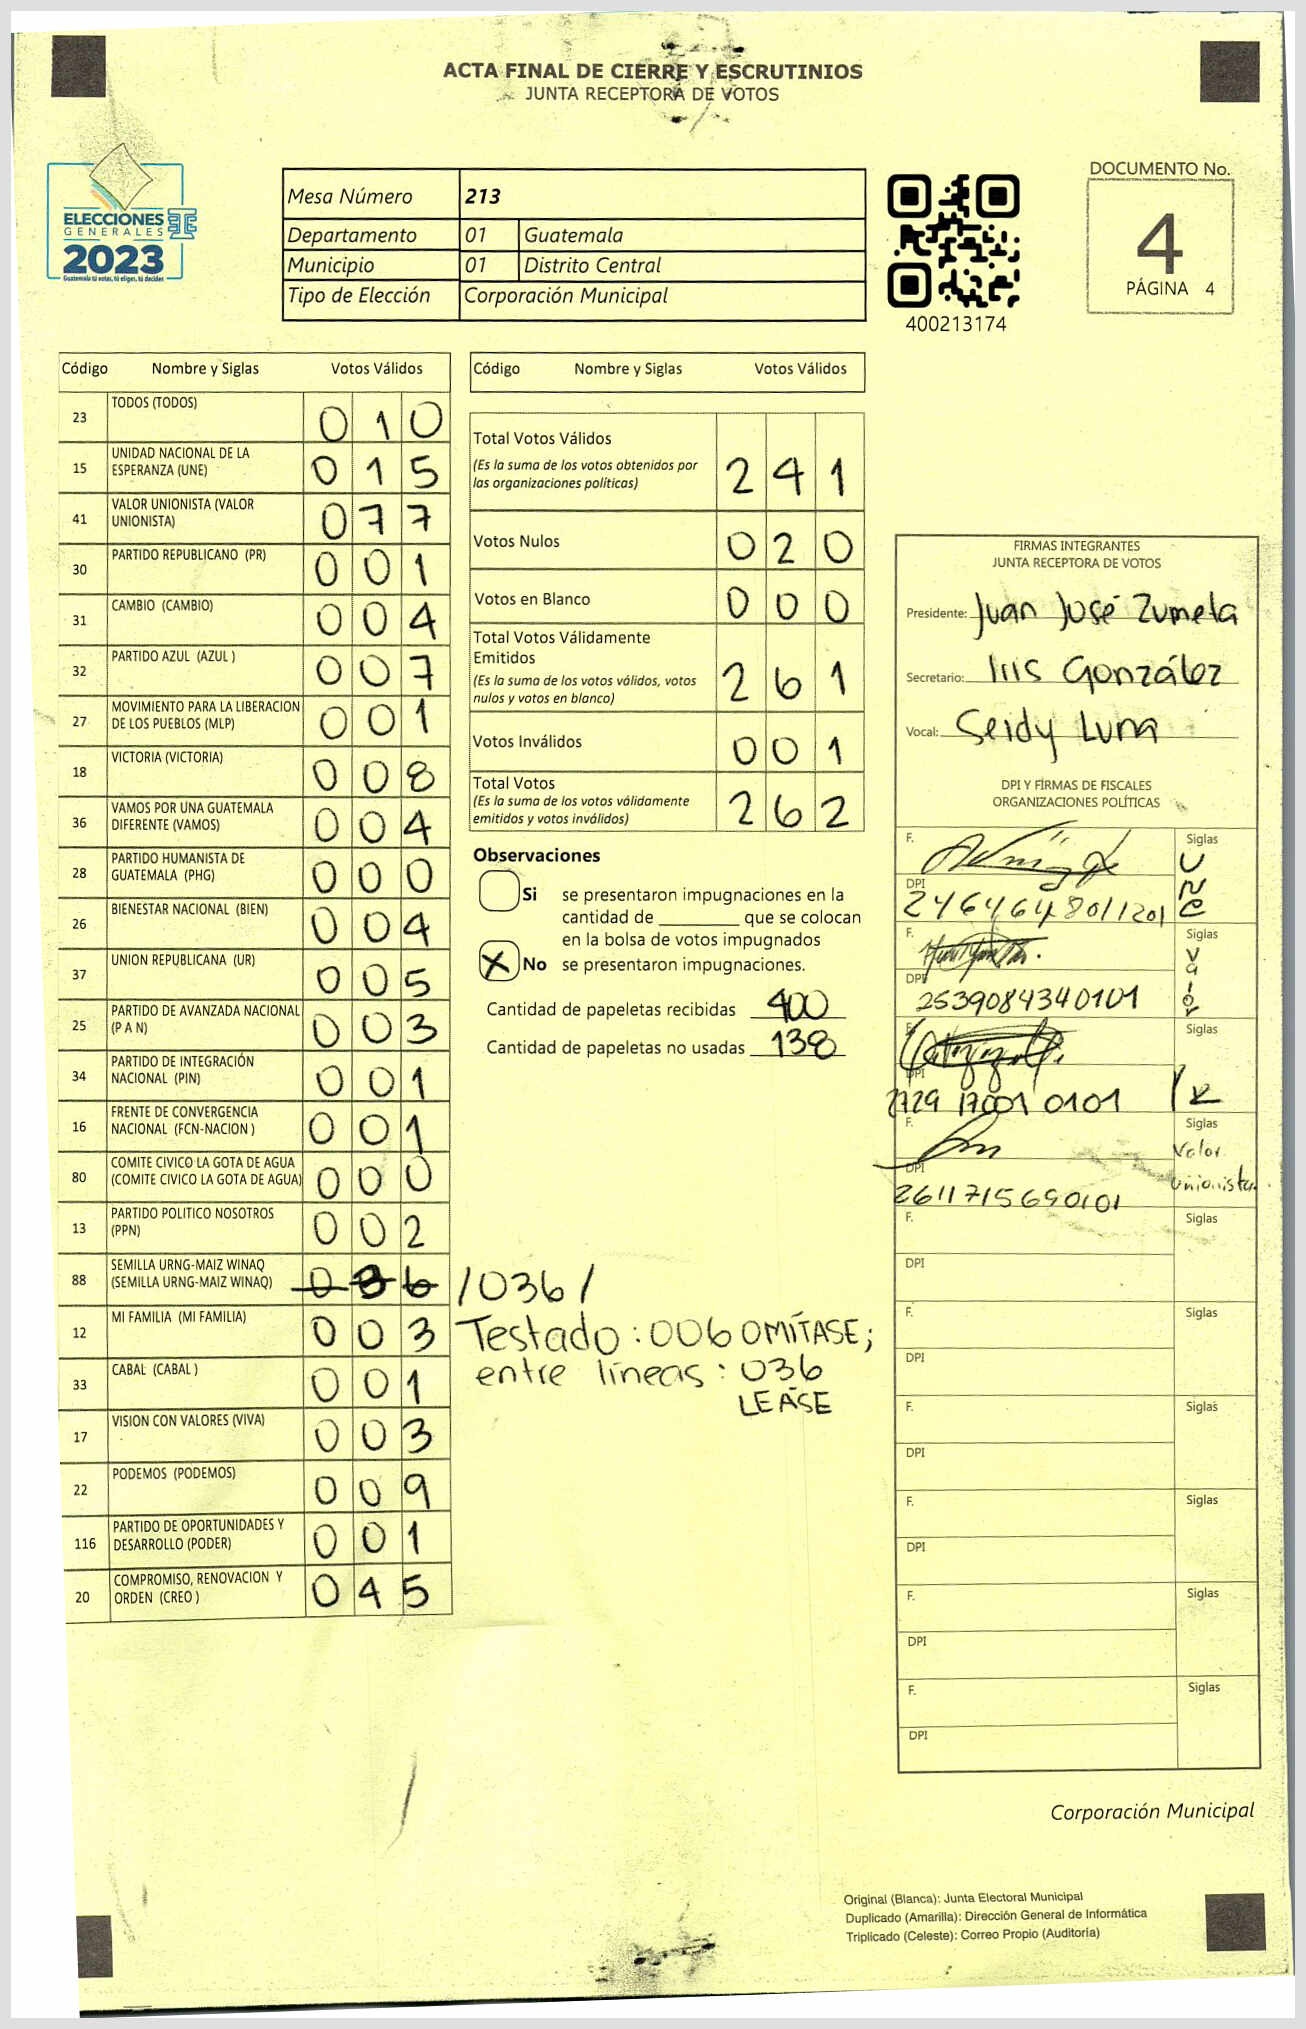 ACTA FINAL DE CIERRE Y ESCRUTINIOS
JUNTA RECEPTORA DE VOTOS
ELECCIONES
GENERALES
2023
Guatemala tú votas, tú eliges, tú decides
Mesa Número 213
Departamento 01 Guatemala
Municipio 01 Distrito Central
Tipo de Elección Corporación Municipal
400213174
DOCUMENTO No.
4
PÁGINA 4
Código Nombre y Siglas Votos Válidos
23 TODOS (TODOS) 0 1 0
15 UNIDAD NACIONAL DE LA
ESPERANZA (UNE) 0 1 5
41 VALOR UNIONISTA (VALOR
UNIONISTA) 0 7 7
30 PARTIDO REPUBLICANO (PR) 0 0 1
31 CAMBIO (CAMBIO) 0 0 4
32 PARTIDO AZUL (AZUL ) 0 0 7
27 MOVIMIENTO PARA LA LIBERACION
DE LOS PUEBLOS (MLP) 0 0 1
18 VICTORIA (VICTORIA) 0 0 8
36 VAMOS POR UNA GUATEMALA
DIFERENTE (VAMOS) 0 0 4
28 PARTIDO HUMANISTA DE
GUATEMALA (PHG) 0 0 0
26 BIENESTAR NACIONAL (BIEN) 0 0 4
37 UNION REPUBLICANA (UR) 0 0 5
25 PARTIDO DE AVANZADA NACIONAL
(P A N) 0 0 3
34 PARTIDO DE INTEGRACIÓN
NACIONAL (PIN) 0 0 1
16 FRENTE DE CONVERGENCIA
NACIONAL (FCN-NACION ) 0 0 1
80 COMITE CIVICO LA GOTA DE AGUA
(COMITE CIVICO LA GOTA DE AGUA) 0 0 0
13 PARTIDO POLITICO NOSOTROS
(PPN) 0 0 2
88 SEMILLA URNG-MAIZ WINAQ
(SEMILLA URNG-MAIZ WINAQ) 0 3 6 /036/
12 MI FAMILIA (MI FAMILIA) 0 0 3
33 CABAL (CABAL ) 0 0 1
17 VISION CON VALORES (VIVA) 0 0 3
22 PODEMOS (PODEMOS) 0 0 9
116 PARTIDO DE OPORTUNIDADES Y
DESARROLLO (PODER) 0 0 1
20 COMPROMISO, RENOVACION Y
ORDEN (CREO ) 0 4 5
Código Nombre y Siglas Votos Válidos
Total Votos Válidos
(Es la suma de los votos obtenidos por
las organizaciones políticas) 2 4 1
Votos Nulos 0 2 0
Votos en Blanco 0 0 0
Total Votos Válidamente
Emitidos
(Es la suma de los votos válidos, votos
nulos y votos en blanco) 2 6 1
Votos Inválidos 0 0 1
Total Votos
(Es la suma de los votos válidamente
emitidos y votos inválidos) 2 6 2
Observaciones
Si se presentaron impugnaciones en la
cantidad de ________ que se colocan
en la bolsa de votos impugnados
X No se presentaron impugnaciones.
Cantidad de papeletas recibidas 400
Cantidad de papeletas no usadas 138
Testado: 006 OMÍTASE;
entre líneas: 036
LEASE
FIRMAS INTEGRANTES
JUNTA RECEPTORA DE VOTOS
Presidente: Juan José Zumeta
Secretario: Iris González
Vocal: Seidy Luna
DPI Y FIRMAS DE FISCALES
ORGANIZACIONES POLÍTICAS
F. Siglas UNE
DPI 2464648011201
F. Siglas Valor
DPI 2539084340101
F. Siglas
DPI 2729 17001 0101
F. Siglas Valor
unionista
DPI 2611715690101
F. Siglas
DPI
F. Siglas
DPI
F. Siglas
DPI
F. Siglas
DPI
F. Siglas
DPI
F. Siglas
DPI
Corporación Municipal
Original (Blanca): Junta Electoral Municipal
Duplicado (Amarilla): Dirección General de Informática
Triplicado (Celeste): Correo Propio (Auditoría)